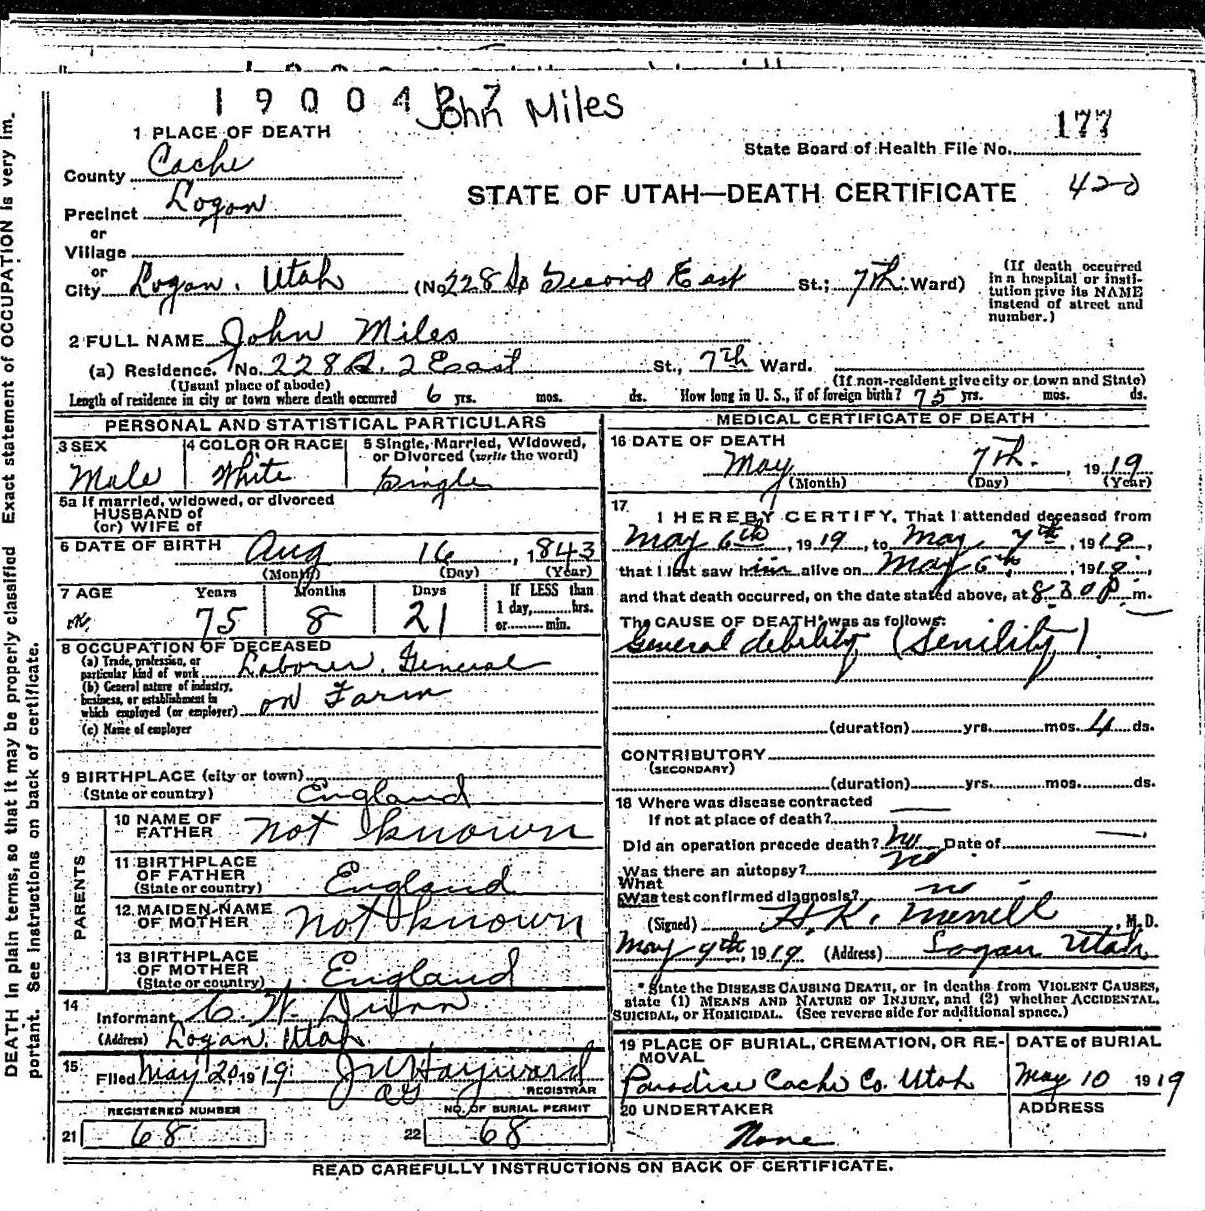 1 9 0 0 4 8 7 John Miles
177
1 PLACE OF DEATH
State Board of Health File No.
County Cache
STATE OF UTAH—DEATH CERTIFICATE 420
Precinct Logan
or
Village
or
City Logan, Utah (No. 228 So Second East St.; 7th Ward)
(If death occurred in a hospital or institution give its NAME instead of street and number.)
2 FULL NAME John Miles
(a) Residence. No. 228 S. 2 East St., 7th Ward.
(Usual place of abode) (If non-resident give city or town and State)
Length of residence in city or town where death occurred 6 yrs. mos. ds. How long in U. S., if of foreign birth? 75 yrs. mos. ds.
PERSONAL AND STATISTICAL PARTICULARS
3 SEX 4 COLOR OR RACE 5 Single, Married, Widowed, or Divorced (write the word)
Male White Single
5a If married, widowed, or divorced
HUSBAND of
(or) WIFE of
6 DATE OF BIRTH Aug 16, 1843
(Month) (Day) (Year)
7 AGE Years Months Days If LESS than
75 8 21 1 day, hrs.
or min.
8 OCCUPATION OF DECEASED
(a) Trade, profession, or
particular kind of work Laborer, General
(b) General nature of industry,
business, or establishment in
which employed (or employer) on Farm
(c) Name of employer
9 BIRTHPLACE (city or town)
(State or country) England
PARENTS
10 NAME OF
FATHER Not known
11 BIRTHPLACE
OF FATHER
(State or country) England
12 MAIDEN NAME
OF MOTHER Not known
13 BIRTHPLACE
OF MOTHER
(State or country) England
14
Informant C. W. Dunn
(Address) Logan, Utah
15
Filed May 20 1919 REGISTRAR
REGISTERED NUMBER NO. OF BURIAL PERMIT
21 68 22 68
MEDICAL CERTIFICATE OF DEATH
16 DATE OF DEATH
May 7th. , 1919
(Month) (Day) (Year)
17
I HEREBY CERTIFY, That I attended deceased from
May 6th, 1919, to May 7th, 1919,
that I last saw him alive on May 6th, 1919,
and that death occurred, on the date stated above, at 8.30 P. m.
The CAUSE OF DEATH* was as follows:
General debility (Senility)
(duration) yrs. mos. 4 ds.
CONTRIBUTORY
(SECONDARY)
(duration) yrs. mos. ds.
18 Where was disease contracted
If not at place of death?
Did an operation precede death? No Date of
Was there an autopsy? No
What
Was test confirmed diagnosis? no
(Signed) H. K. Merrill, M. D.
May 9th, 1919 (Address) Logan Utah
* State the DISEASE CAUSING DEATH, or in deaths from VIOLENT CAUSES,
state (1) MEANS AND NATURE OF INJURY, and (2) whether ACCIDENTAL,
SUICIDAL, or HOMICIDAL. (See reverse side for additional space.)
19 PLACE OF BURIAL, CREMATION, OR RE- DATE OF BURIAL
MOVAL
Paradise Cache Co. Utah May 10 1919
20 UNDERTAKER ADDRESS
None
READ CAREFULLY INSTRUCTIONS ON BACK OF CERTIFICATE.
DEATH in plain terms, so that it may be properly classified Exact statement of OCCUPATION is very im.
portant. See instructions on back of certificate.